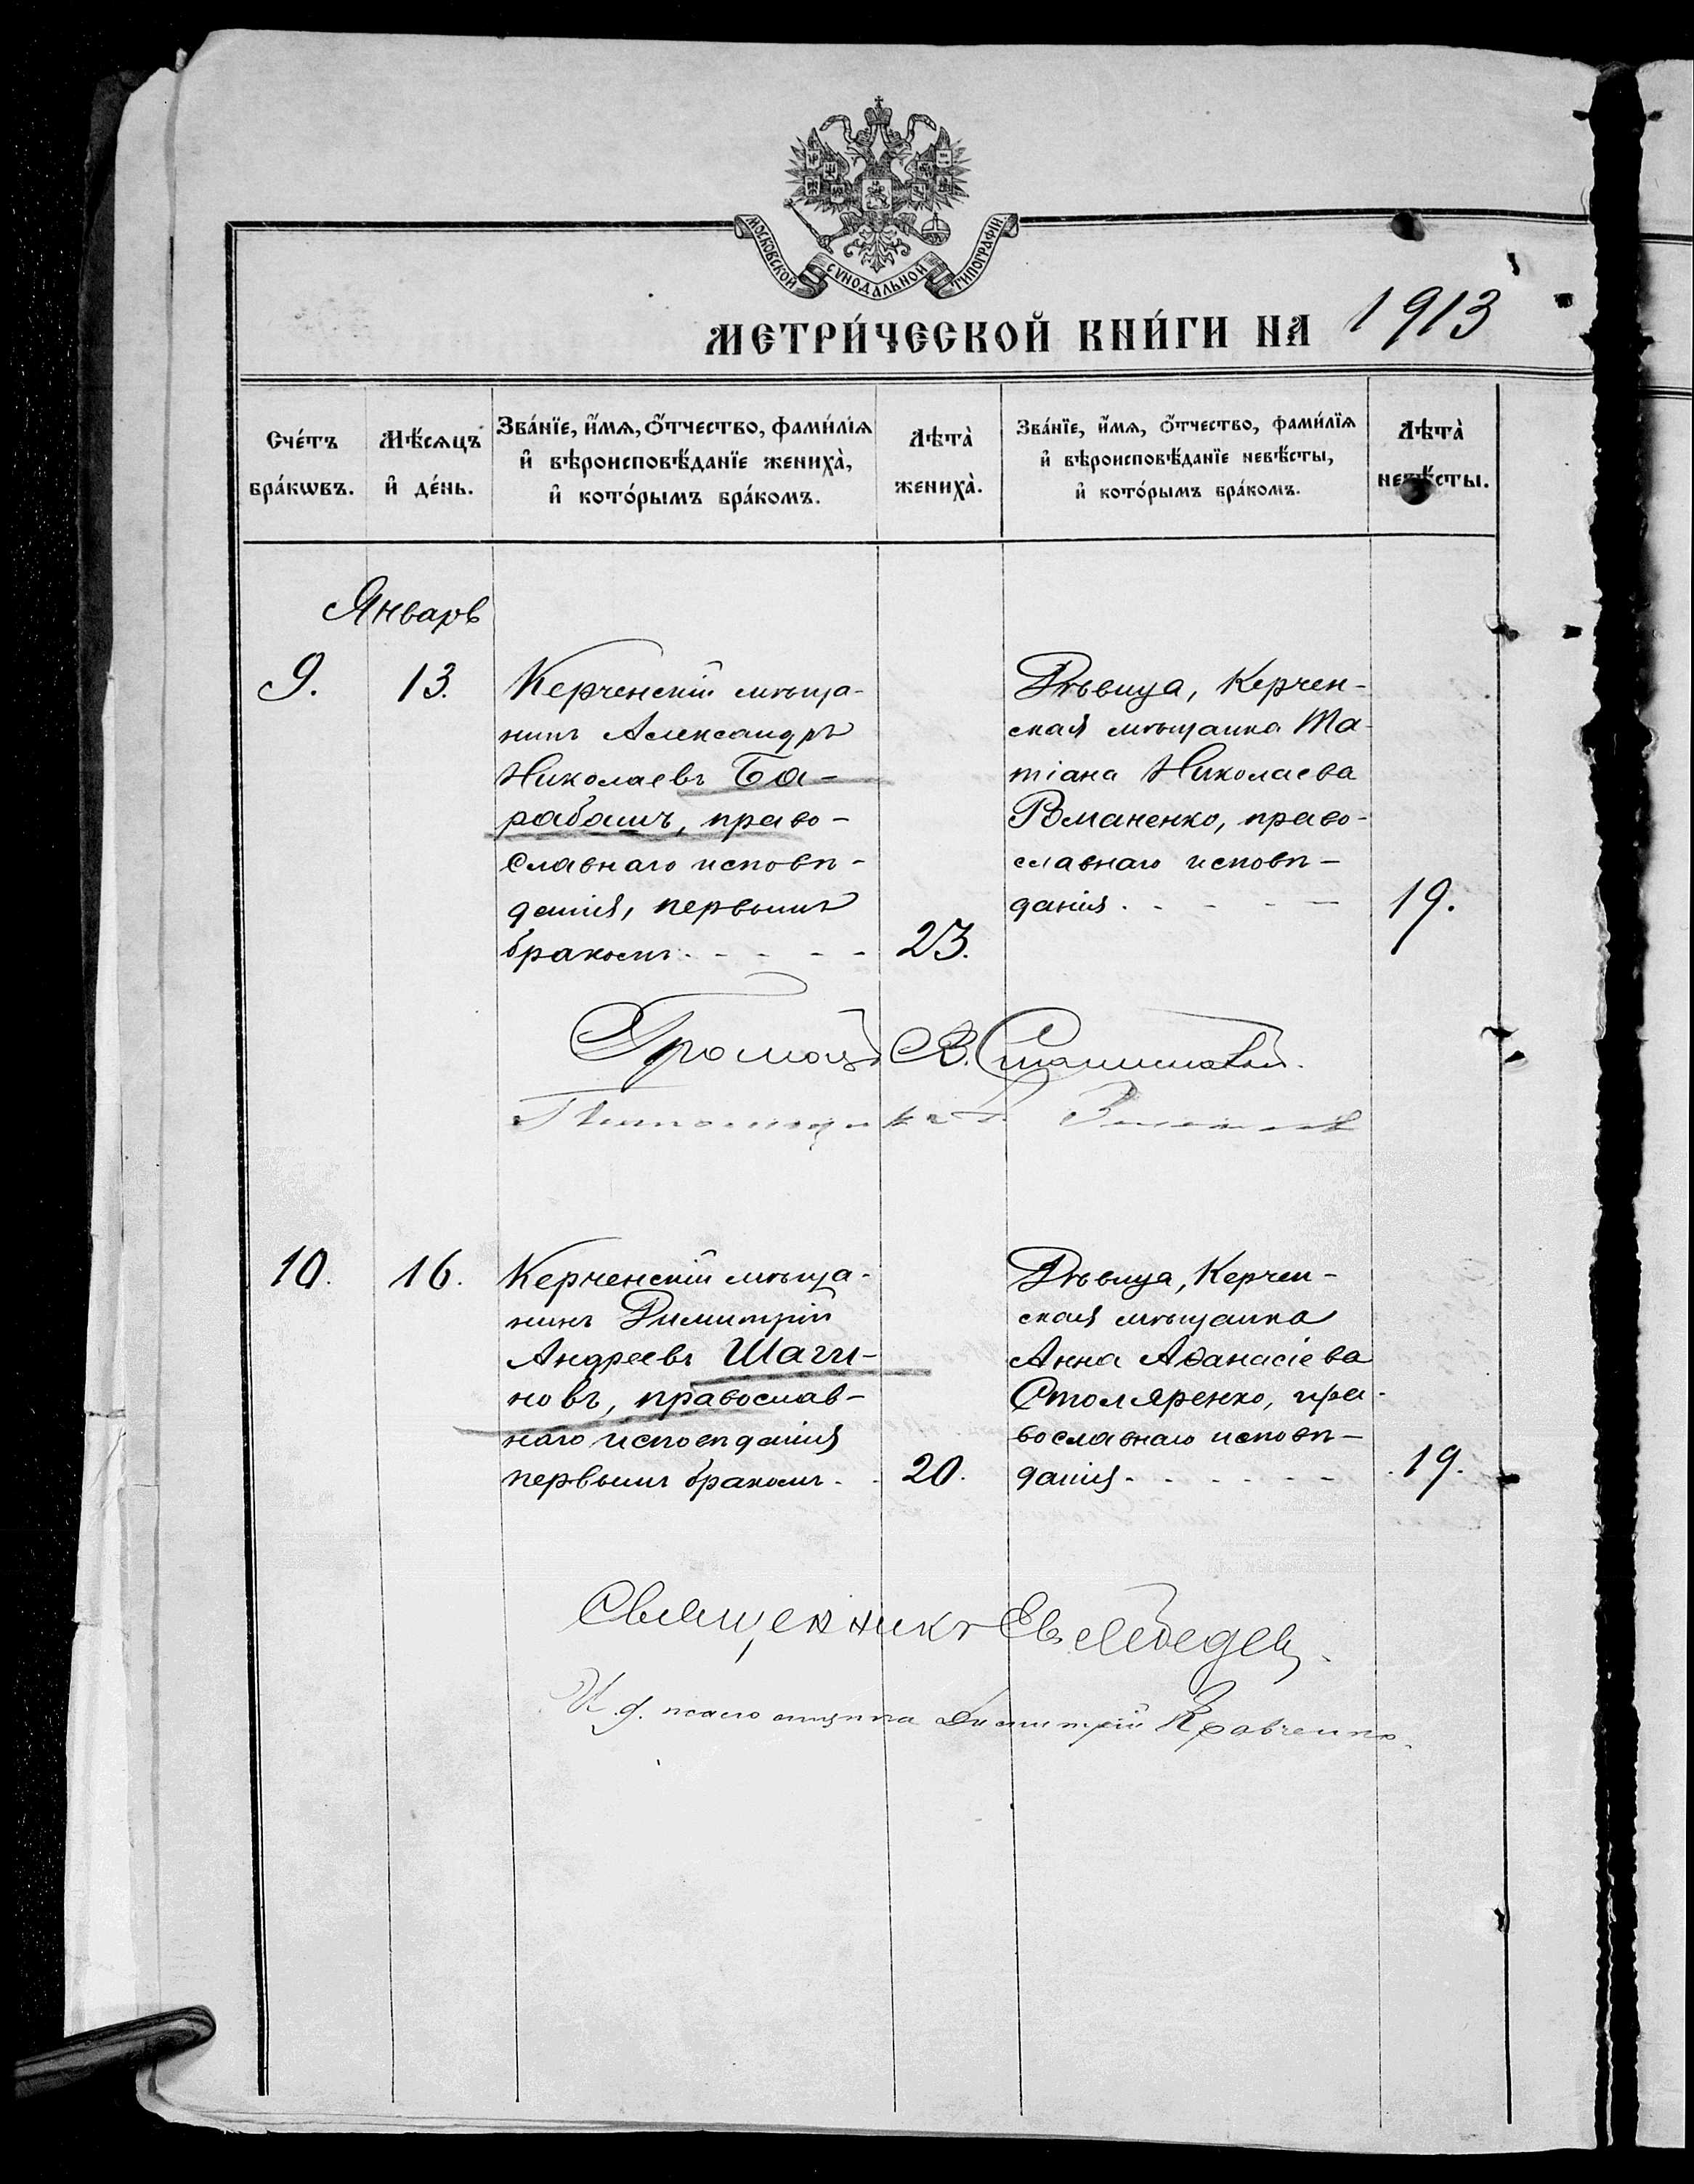 МОСКОВСКОЙ СѴНОДАЛЬНОЙ ТИПОГРАФІИ.
МЕТРИ́ЧЕСКОЙ КНИ́ГИ НА 1913
Сче́тъ бра́кѡвъ.
Мѣ́сяцъ и҆ де́нь.
Зва́нїе, и҆́мѧ, ѻ҆́тчество, фами́лїѧ
и҆ вѣроисповѣ́данїе жениха̀,
и҆ кото́рымъ бра́комъ.
Лѣта̀ жениха̀.
Зва́нїе, и҆́мѧ, ѻ҆́тчество, фами́лїѧ
и҆ вѣроисповѣ́данїе невѣ́сты,
и҆ кото́рымъ бра́комъ.
Лѣта̀ невѣ́сты.
Январь
9.
13.
Керченскій мѣща-
нинъ Александръ
Николаевъ Ба-
рабашъ, право-
славнаго исповѣ-
данія, первымъ
бракомъ. - - - -
23.
Дѣвица, Керчен-
ская мѣщанка Та-
тіана Николаева
Романенко, право-
славнаго исповѣ-
данія. - - - -
19.
В.
10.
16.
Керченскій мѣща-
нинъ Димитрій
Андреевъ Шаги-
новъ, православ-
наго исповѣданія
первымъ бракомъ. -
20.
Дѣвица, Керчен-
ская мѣщанка
Анна Аѳанасіева
Столяренко, пра-
вославнаго исповѣ-
данія. - - - - -
19.
Священникъ Ев. Лебедевъ.
И. д. псаломщика Димитрій Кравченко.